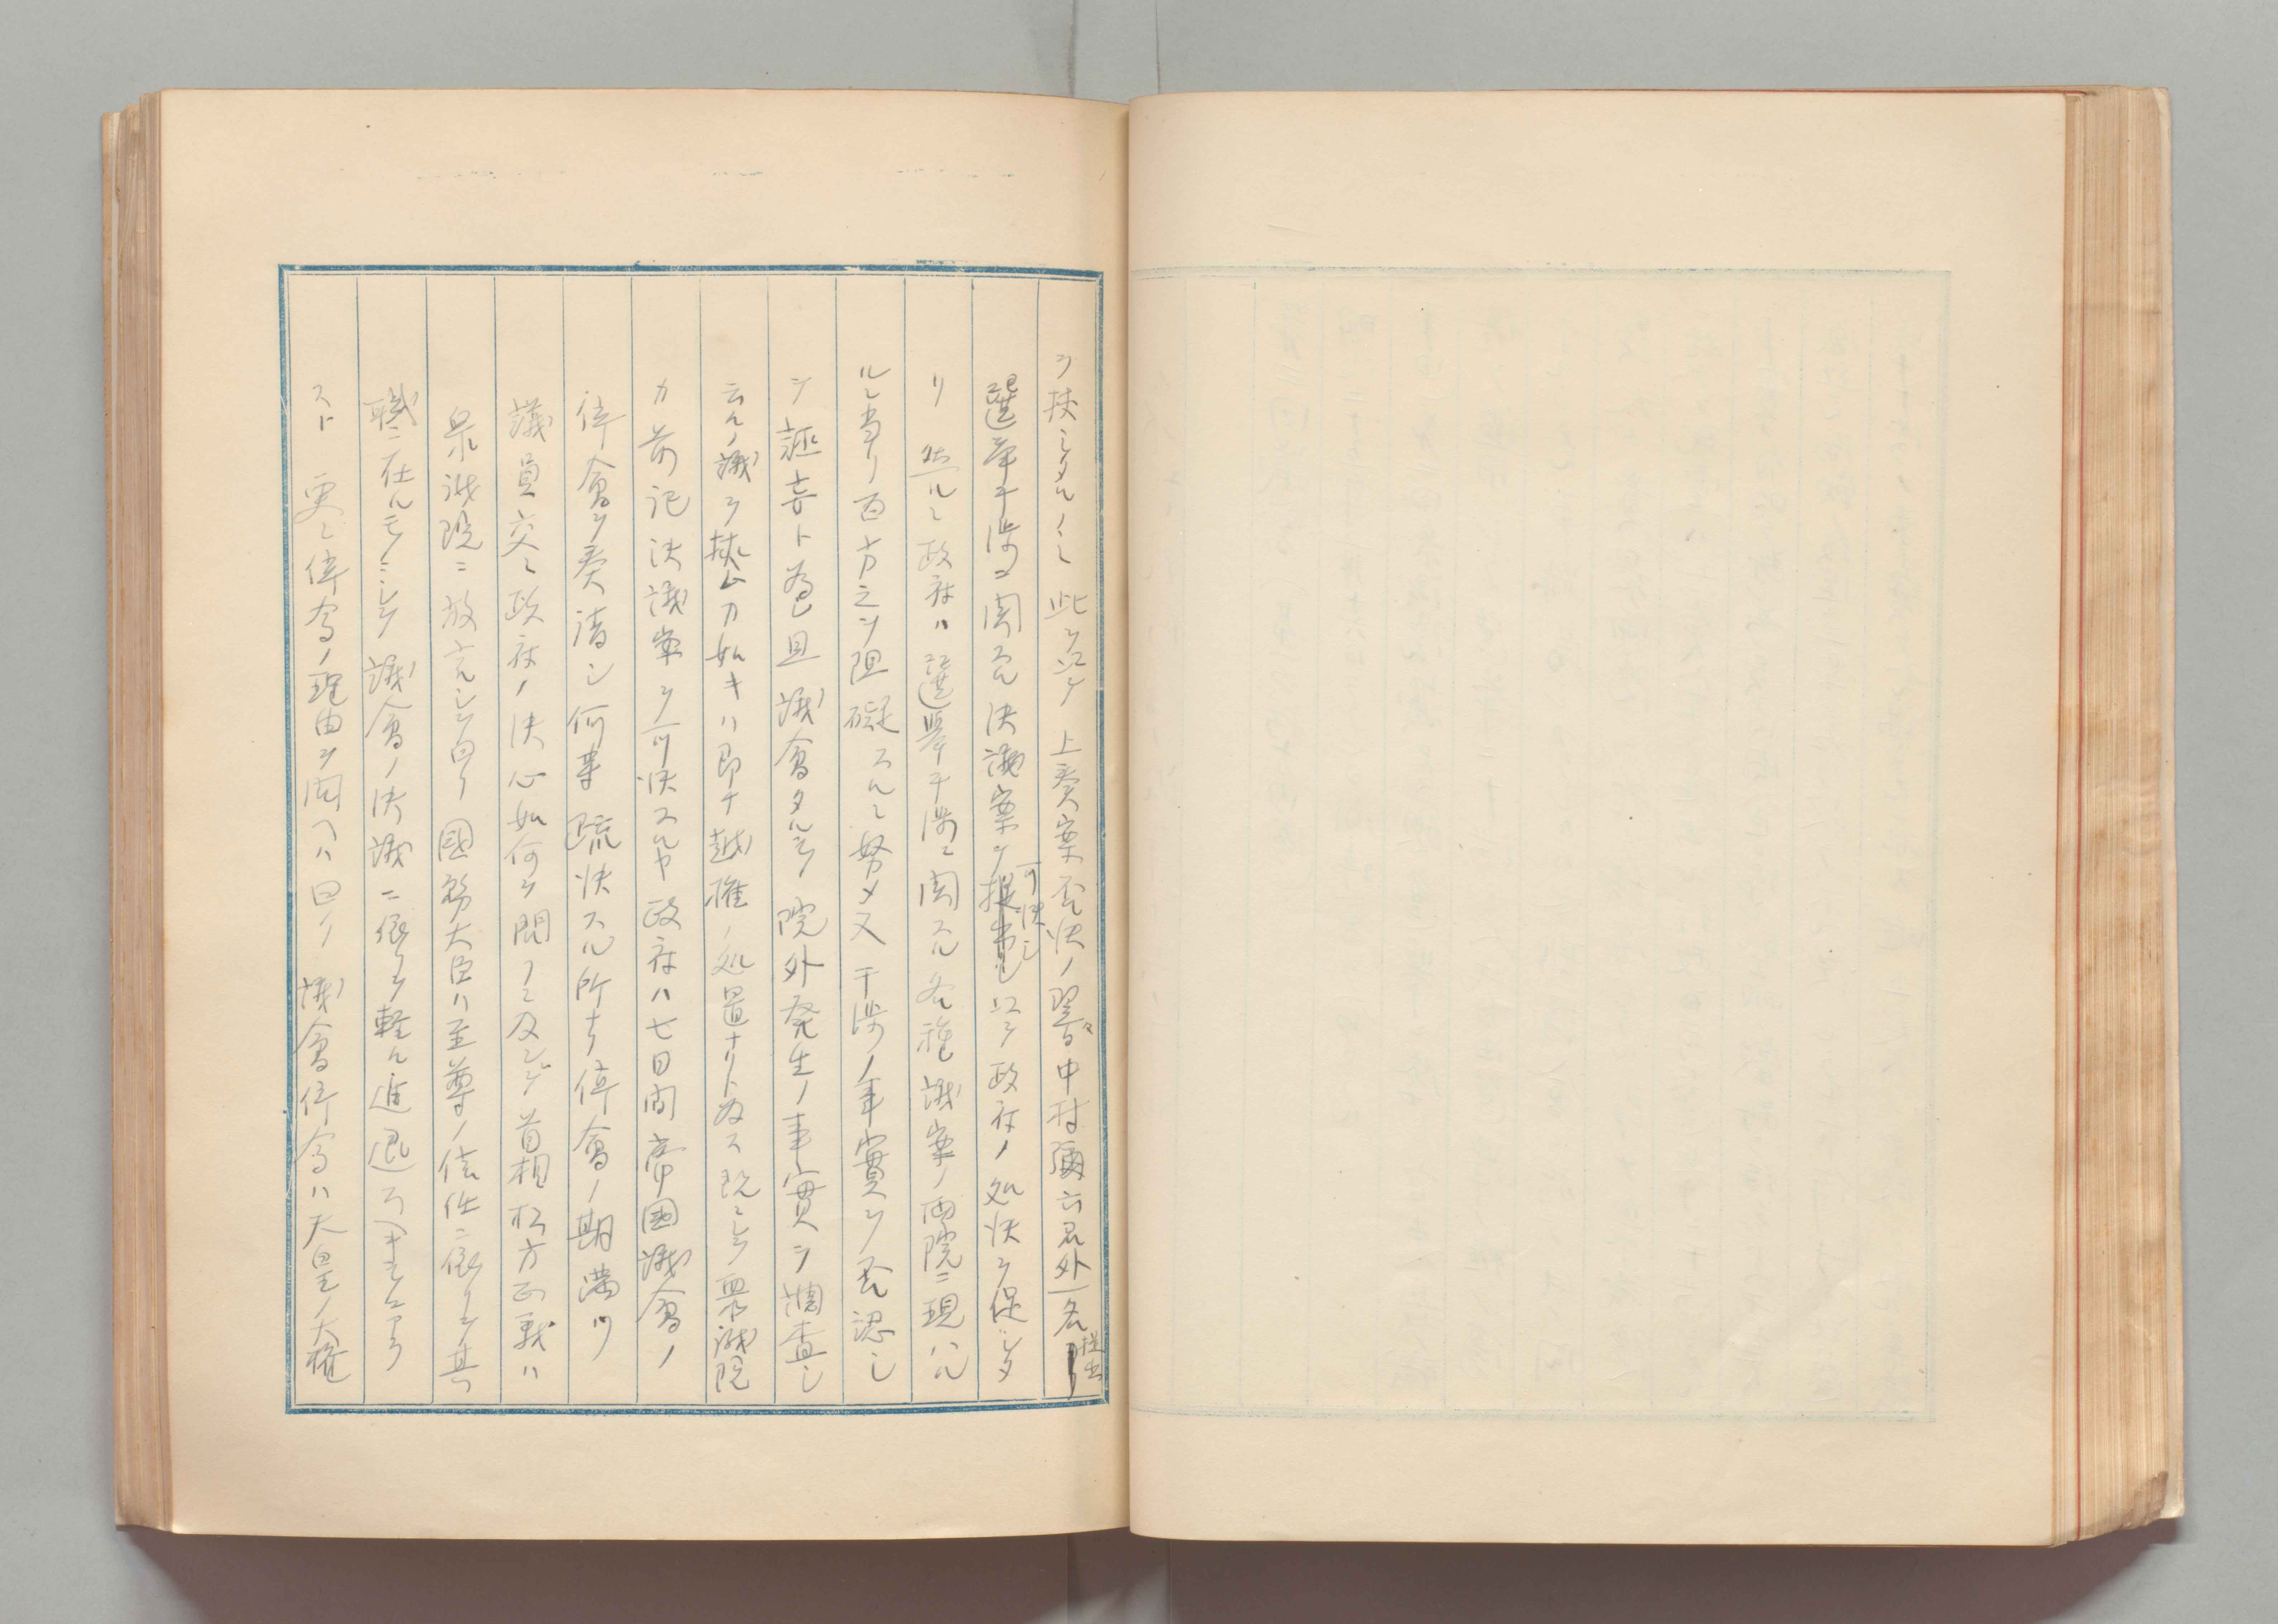 ヲ挟ミタルノミ此ヲ以テ上奏案否決ノ翌々日中村彌六君外一名提出
選挙干渉ニ関スル決議案ヲ可決シ以テ政府ノ処決ヲ促シタ
リ然ルニ政府ハ選挙干渉ニ関スル各種議案ノ両院ニ現ハル
ルニ当リ百方之ヲ阻礙スルニ努メ又干渉ノ事実ヲ否認シ
テ誣妄ト為シ且議會タルモノ院外発生ノ事實ヲ調査シ
云々ノ議ヲ挟ム力如キハ即チ越権ノ処置ナリト為ス既ニシテ衆議院
カ前記決議案ヲ可決スルヤ政府ハ七日間帝國議會ノ
停會ヲ奏請シ何事モ疏決スル所ナク停會ノ期満ツ
議員交々政府ノ決心如何ヲ問フニ及ンデ首相松方正義ハ
衆議院ニ放言シテ曰ク國務大臣ハ至尊ノ信任ニ依リテ其
職ニ在ルモノニシテ議會ノ決議ニ依リテ軽々進退スヘキモノニアラ
スト更ニ停會ノ理由ヲ問ヘハ曰ク議會停会ハ天皇ノ大権